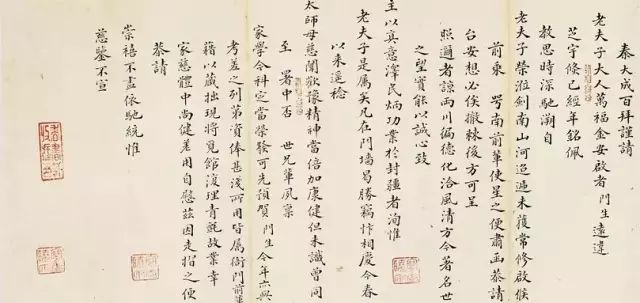 秦大成百拜謹請
老夫子大人萬福金安啟者門生遠違
芝宇倏已經年銘佩
教思時深馳溯自
老夫子榮蒞劍南山河迢遞未獲常修啟候
前乘 前輩使星之便肅函恭請
台安想必俟撤棘後方可呈
照邇者諒兩川徧德化洽風清方今著名世
之望實能以誠心致
主以真意澤民炳功業於封疆者洵惟
老夫子是屬矣凡在門墻曷勝竊忭相慶今春
以來遥稔
太師母慈闈歡豫精神當倍加康健但未識曾同
至 署中否 世兄輩夙稟
家學今科定當榮發可先預賀門生今年六與
考差之列第資俸甚淺所用皆属衙門前輩
藉以藏拙現將覓館復理青氈故業幸
家慈體中尚健差用自慰茲因走摺之便
恭請
崇禧不盡依馳統惟
慈鑒不宣